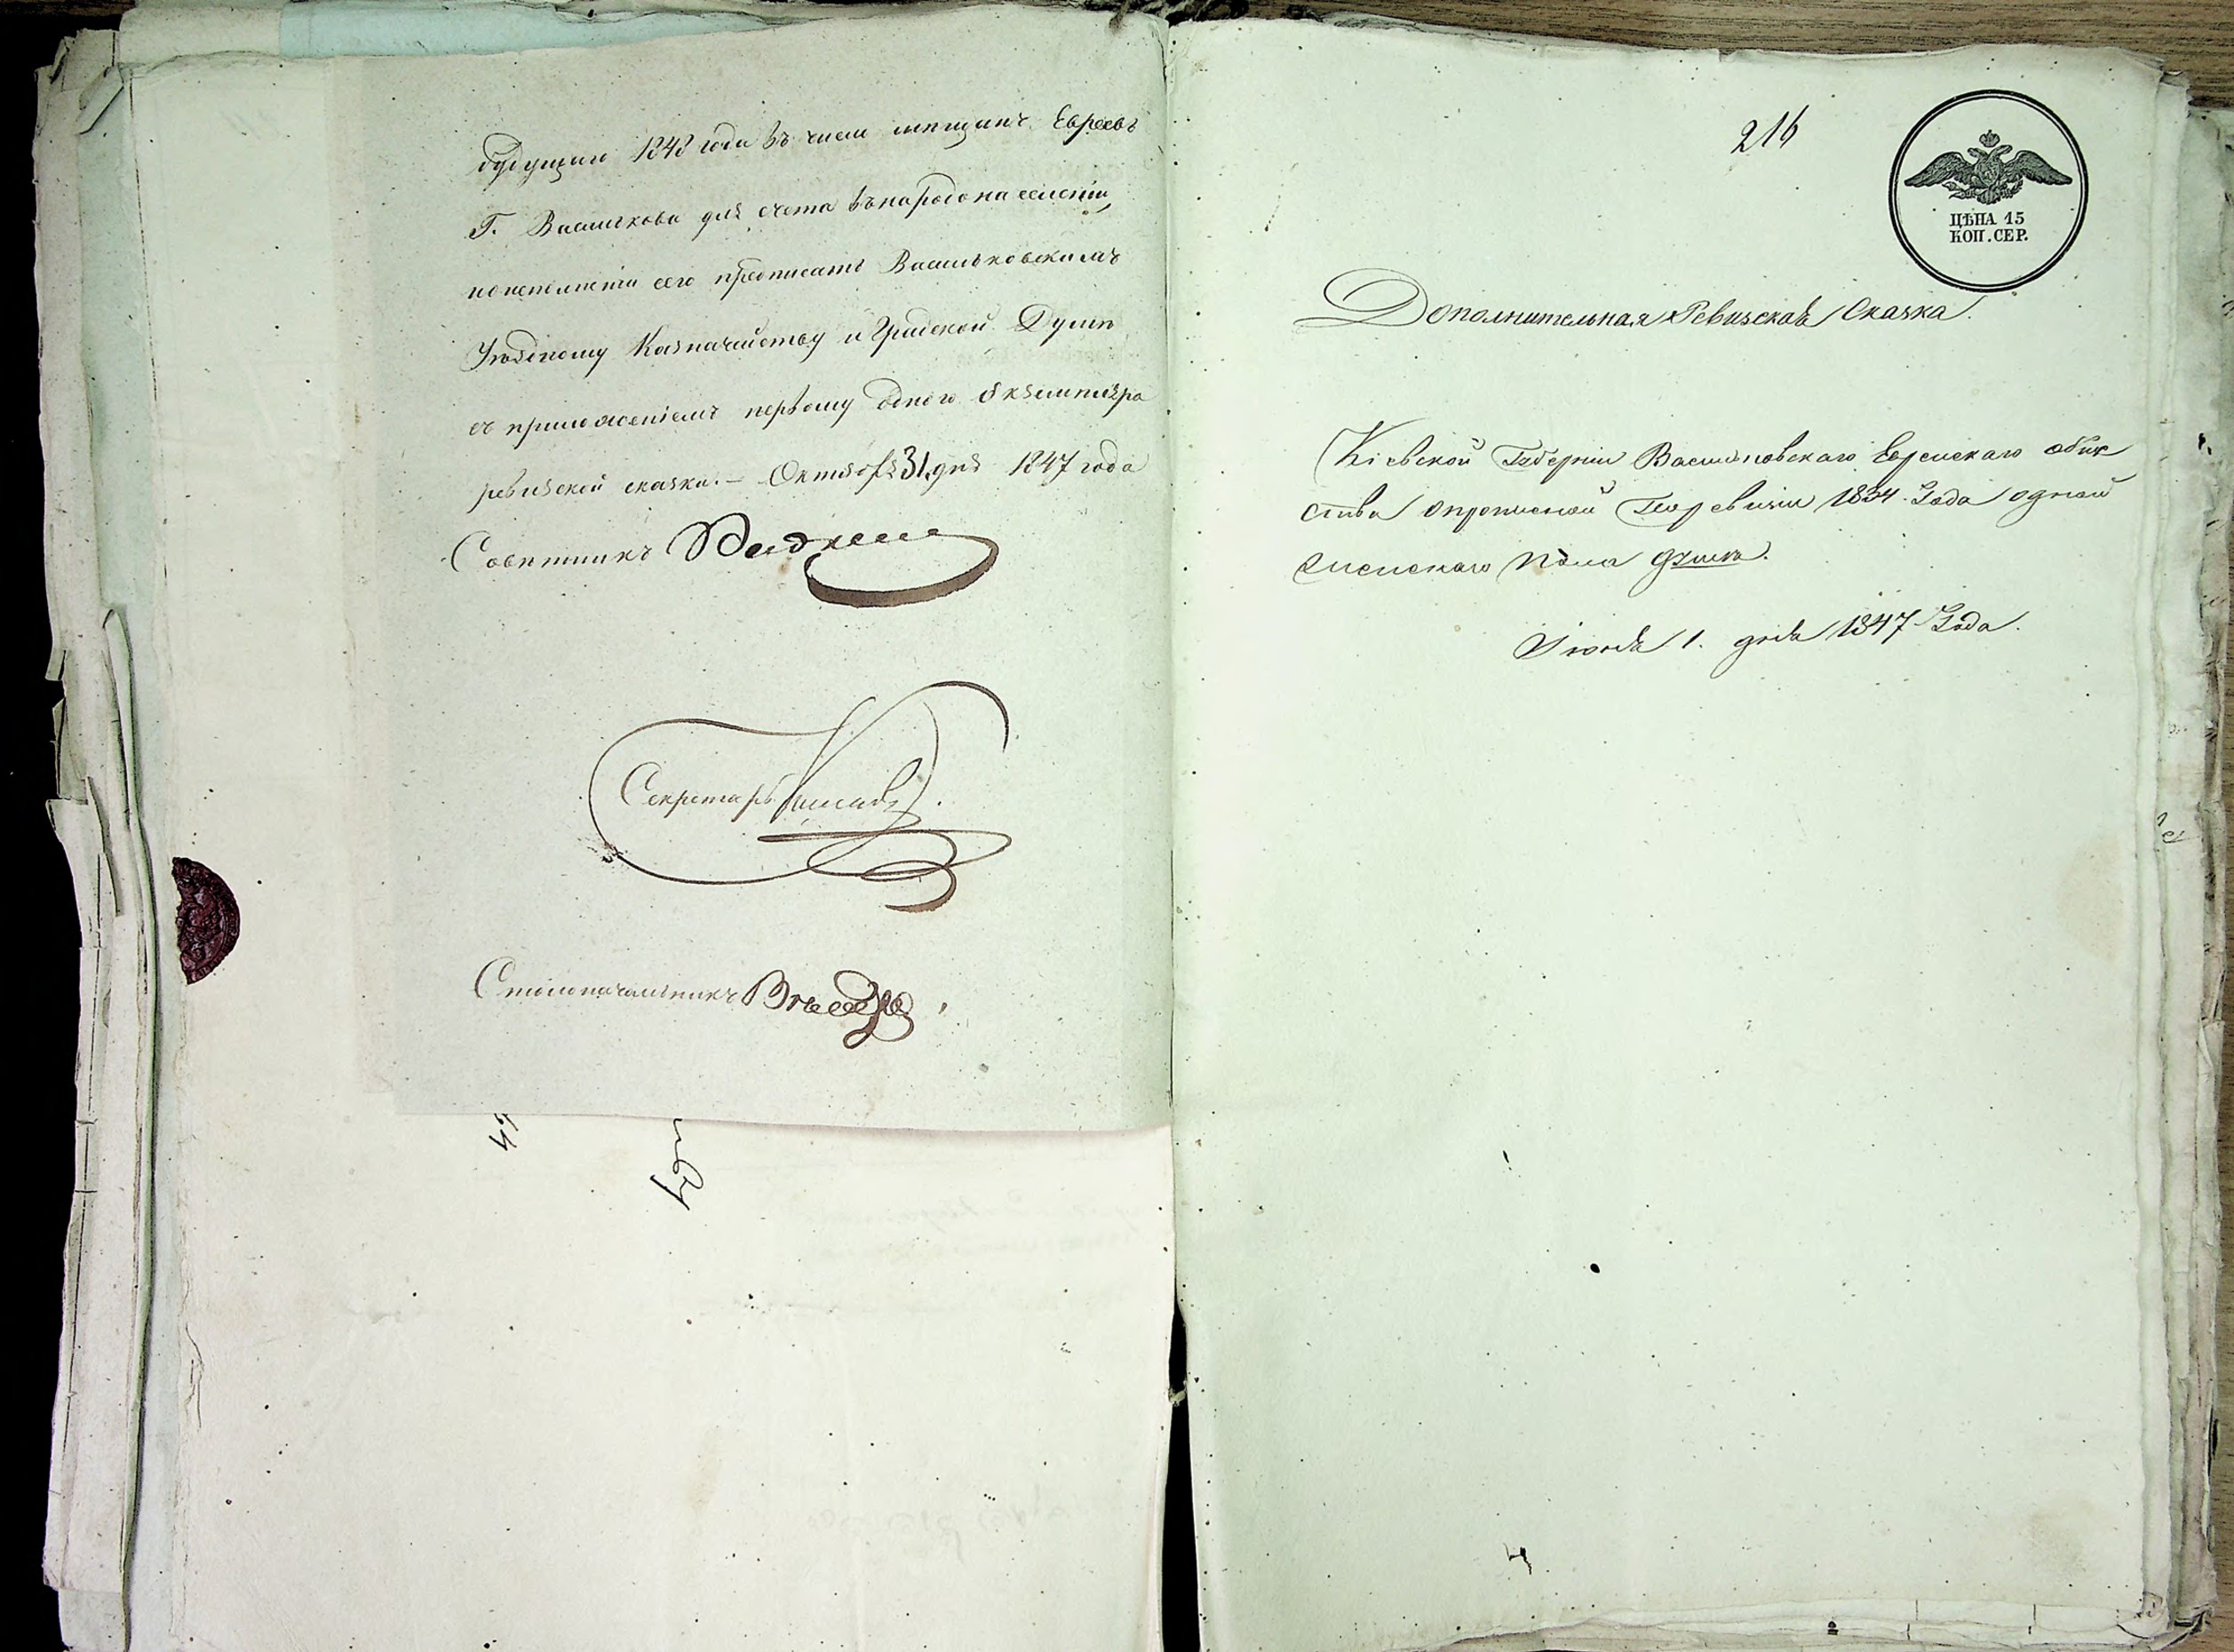 будущаго 1848 года въ число мещанъ Евреевъ
Г. Василькова для счета въ народонаселеніи,
по исполненіи сего предписать Васильковскимъ
Уѣздному Казначейству и Градской Думѣ
съ приложеніемъ первому одного экземпляра
ревизской сказки. – Октября 31 дня 1847 года
Совѣтникъ
Секретарь
Столоначальникъ
216
ЦѢНА 15
КОП. СЕР.
Дополнительная Ревизская Сказка.
Кіевской Губерніи Васильковскаго Еврейскаго обще
ства о прописной по ревизіи 1834 Года одной
женскаго пола душѣ.
Іюня 1. дня 1847 Года.